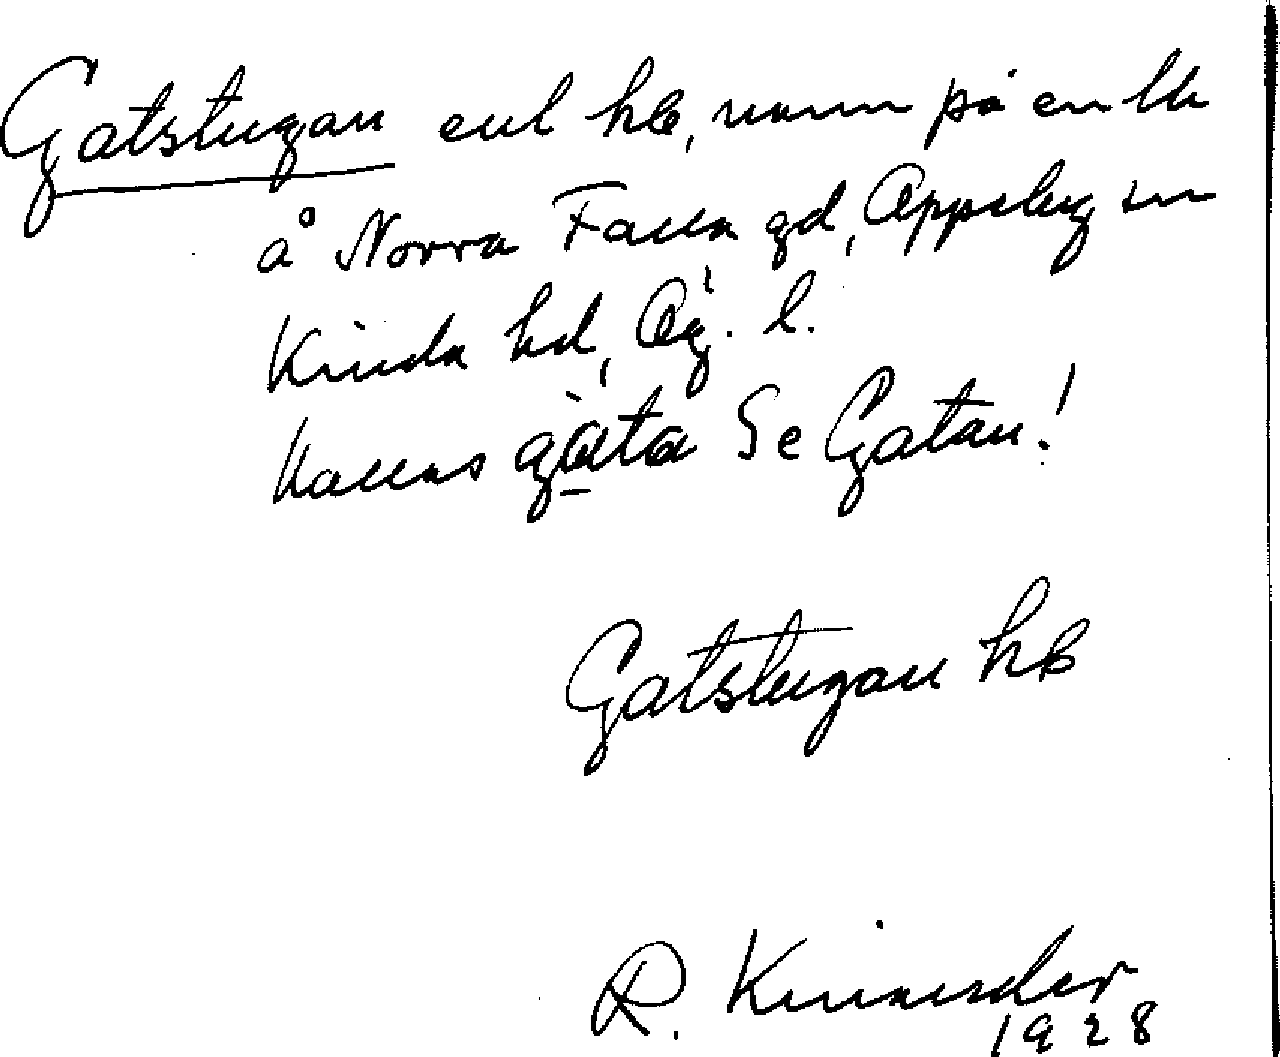 Gatstugan enl hb, namn på en lh
å Norra Falla gd, Oppeby sn
Kinda hd, Ög. l.
Kallas gàta Se Gatan!
Gatstugan hb
R.
1928